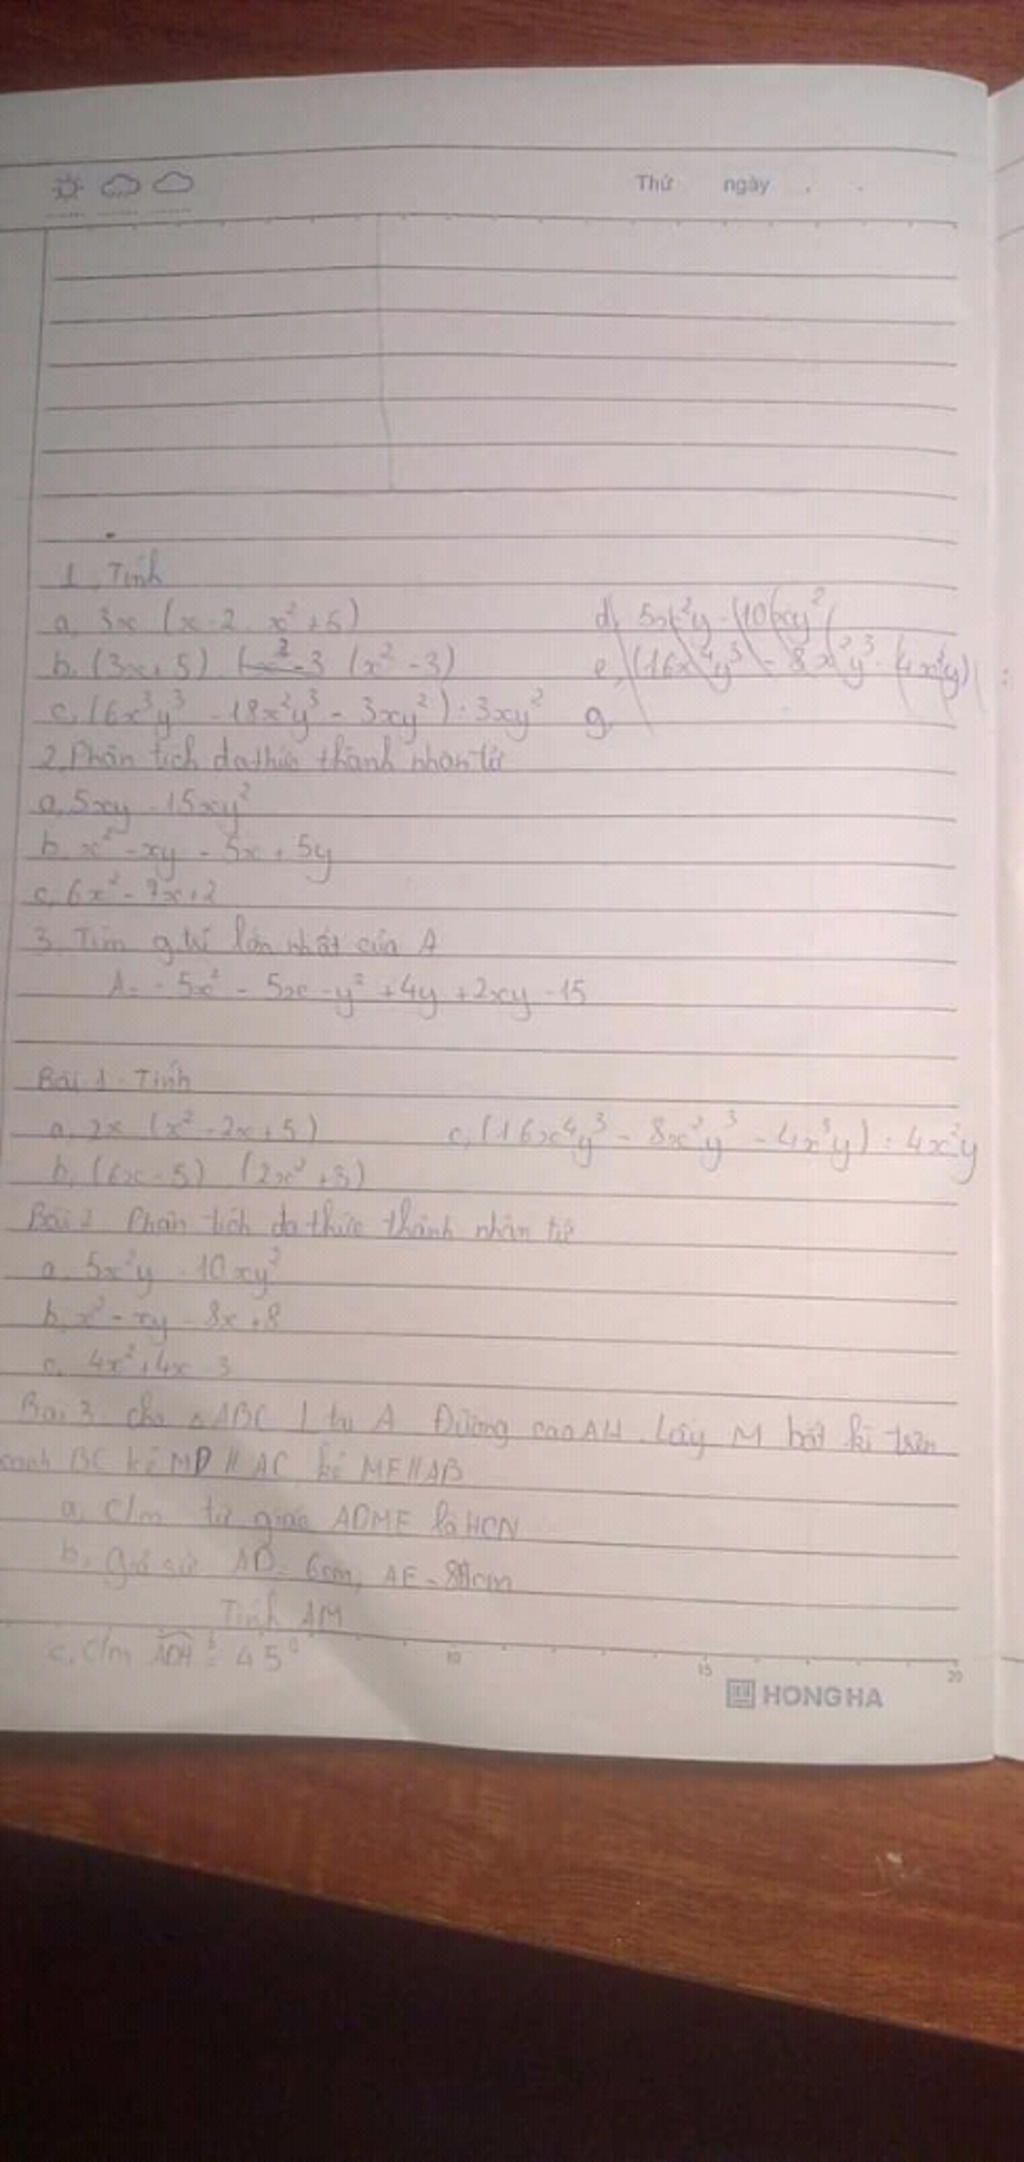 Thứ ngày
1. Tính
a, 3x (x - 2 x² + 5)
b. (3x + 5) (x² - 3 (x² - 3)
c, (6x³y³ - 18x²y³ - 3xy²) : 3xy²
d, 5x²y - 10xy²
e, (16x⁴y³ - 8x²y³ - 4x³y) :
g.
2. Phân tích đa thức thành nhân tử
a, 5xy - 15xy²
b. x² - xy - 5x + 5y
c, 6x² - 7x + 2
3. Tìm g.trị lớn nhất của A
A = - 5x² - 5x - y² + 4y + 2xy - 15
Bài 1. Tính
a. 2x (x² - 2x + 5) c, (16x⁴y³ - 8x²y³ - 4x³y) : 4x²y
b, (6x - 5) (2x² + 3)
Bài 2 Phân tích đa thức thành nhân tử
a. 5x²y - 10xy²
b. x² - xy - 8x + 8
c. 4x² + 4x - 3
Bài 3 cho △ABC ⊥ tại A Đường cao AH. Lấy M bất kì trên
cạnh BC kẻ MD // AC kẻ ME // AB
a, C/m tứ giác ADME là HCN
b, giả sử AD = 6cm, AE = 8cm
Tính AM
c, C/m = 45°
10 15 20
HONG HA